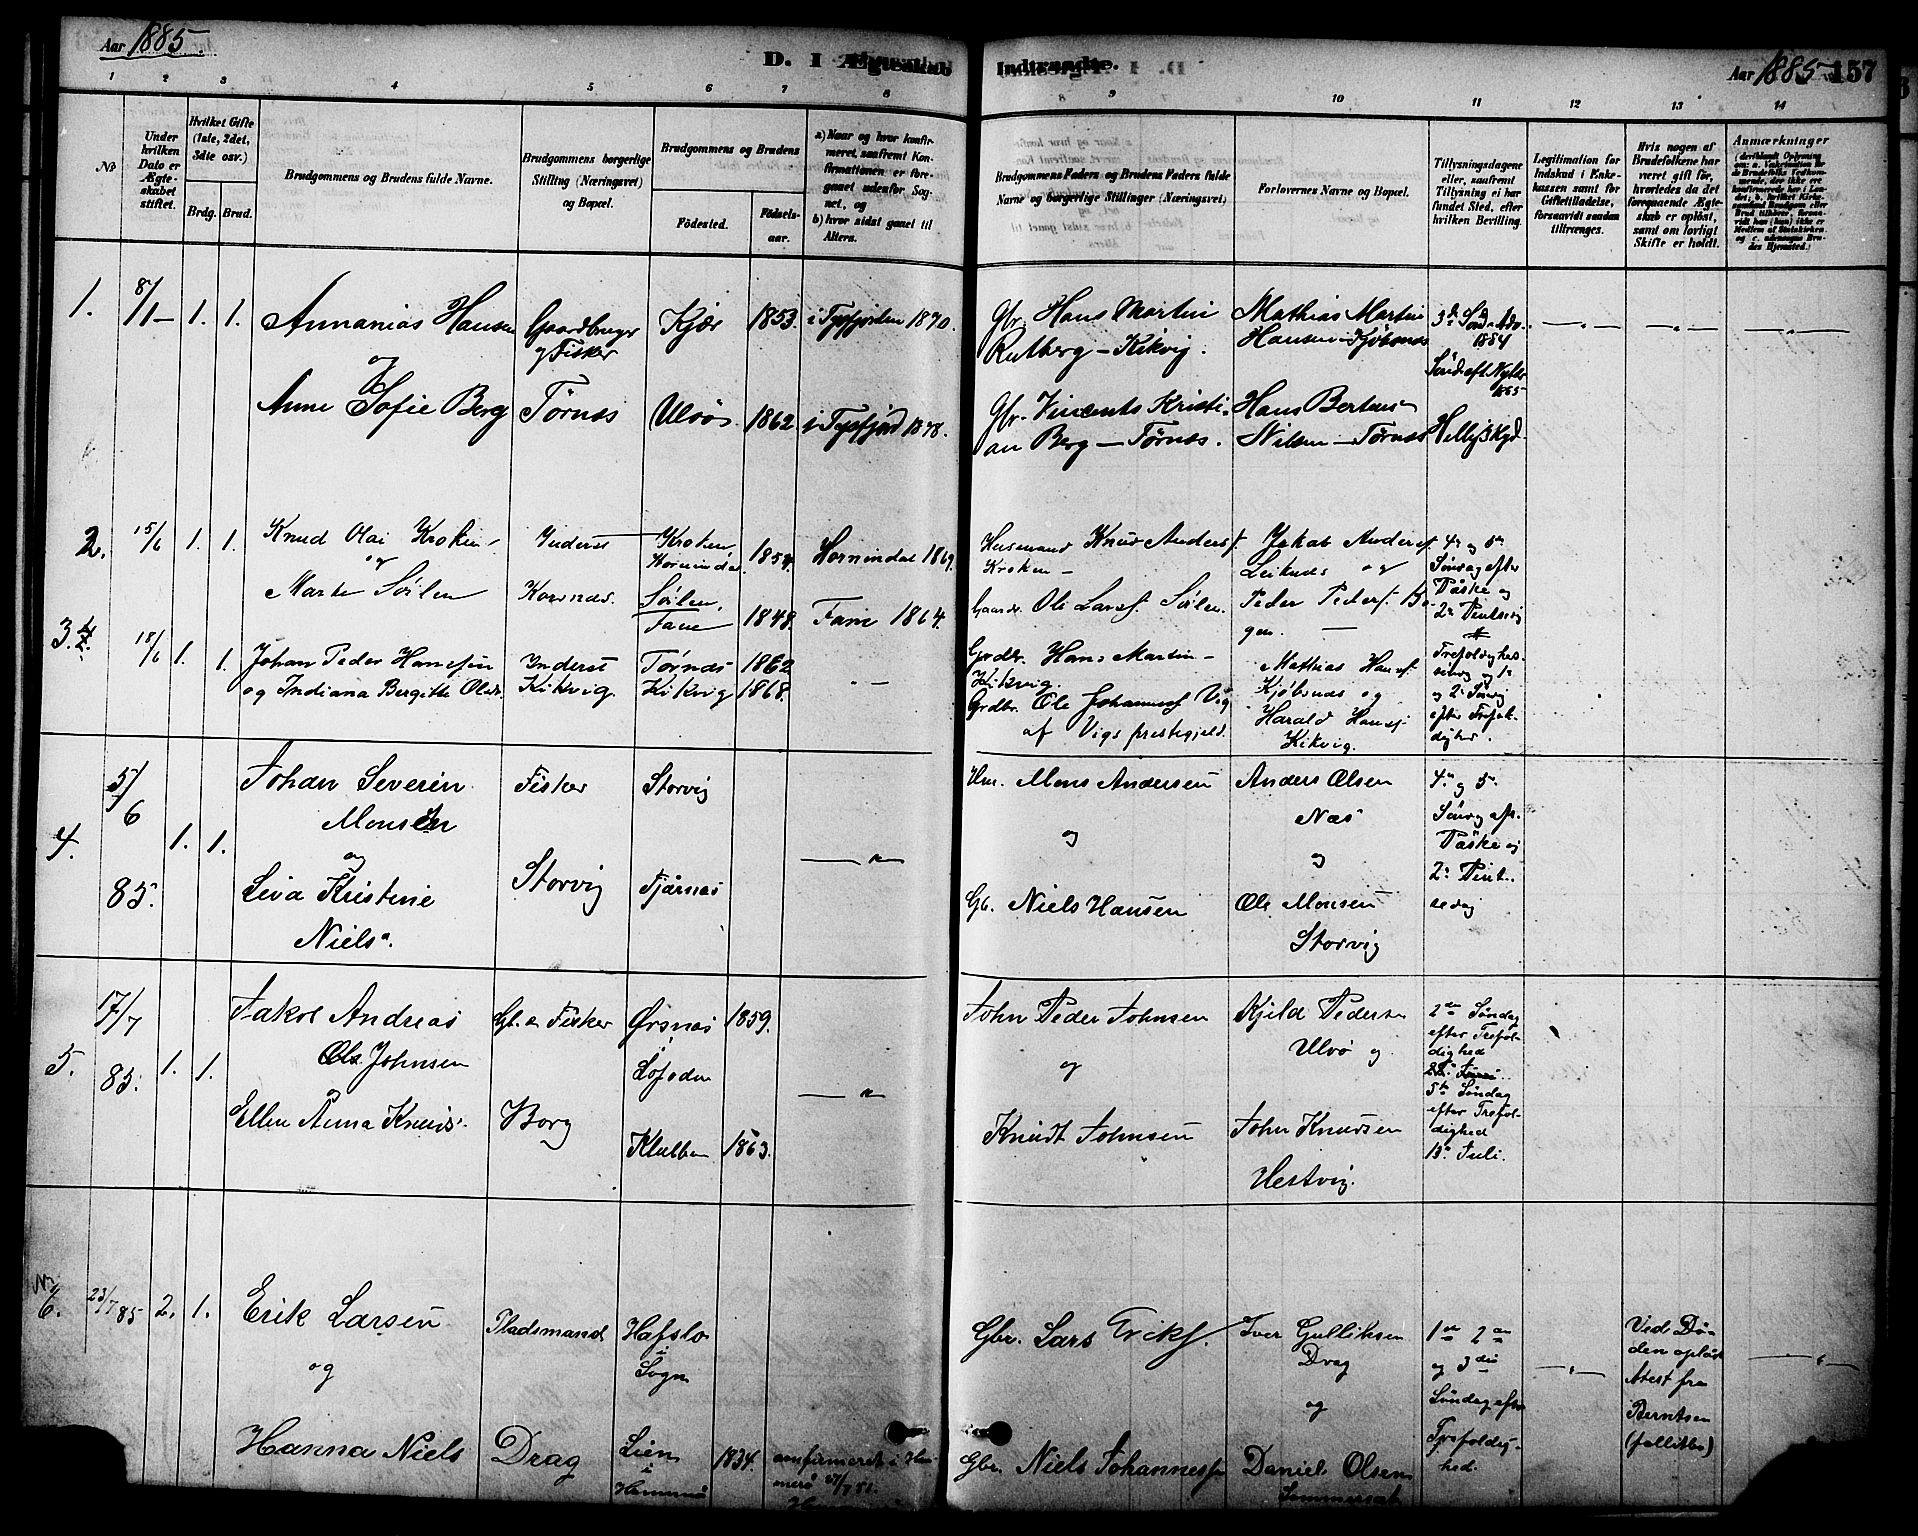 Aar 1885.
D. I Ægteskab Indtraadte.
Aar 1885 157
1 2 3 4 5 6 7 8 9 10 11 12 13 14
No
Under hvilken Dato er Ægteskabet stiftet.
Hvilket Gifte (1ste, 2det, 3die osv.)
Brdg. Brud.
Brudgommens og Brudens fulde Navne.
Brudgommens borgerlige Stilling (Næringsvei) og Bopæl.
Brudgommens og Brudens
Fødested. Fødselsaar.
a) Naar og hvor konfirmeret, saafremt Konfirmationen er foregaaet udenfor Sognet, og
b) hvor sidst gaaet til Alters.
Brudgommens Faders og Brudens Faders fulde Navne og borgerlige Stillinger (Næringsvei)
Forlovernes Navne og Bopæl.
Tillysningsdagene eller, saafremt Tillysning ei har fundet Sted, efter hvilken Bevilling.
Legitimation for Indskud i Enkekassen samt for Giftetilladelse, forsaavidt saadan tiltrænges.
Hvis nogen af Brudefolkene har været gift før, hvorledes da det foregaaende Ægteskab er opløst, samt om lovligt Skifte er holdt.
Anmærkninger
1. 8/1 1. 1. Annanias Hansen Gaardbruger Kjær 1853. i Tysfjorden 1870. Gbr. Hans Martin Mathias Martin
og og Fisker Rutberg - Kikvig. Hansen - Kjøbsnæs 1884
Anne Sofie Berg Tørnæs Ulvø 1862 i Tysfjord 1878. Gbr. Vincents Kristi- Hans Bertens
an Berg - Tørnæs. Nilsen - Tørnæs
2. 15/6 1. 1. Knud Olai Kroken Inderst Kroken Hornindal 1869. Husmand Knud Anders. Jakob Anders. 4de og 5te
og Hornindal Kroken - og Søndag efter
Marte Søilen Kornæs. Søilen, 1848. 1864. Gaardr. Ole Lars. Søilen. Peder Peders. Bo- Paaske og
gen. 2n Pintsedag
3. 18/6 1. 1. Johan Peder Hansen Inderst Tørnæs 1862 Grdbr. Hans Martin - Mathias Hans.
og Indiana Bergitte Ols. Kikvig. Kikvig 1868. Kikvig. Kjøbsnæs og og 2n Søndag
Grdbr. Ole Johannes. Vig Harald Hans. efter Trefol-
af Vigs prestegjeld. Kikvig. dighed.
5/6 Johan Severin Fisker Storvig Hm. Mons Andersen Anders Olsen 4n og 5n
Monsen og Næs Søndag eft.
4. 1. 1. og og Paaske og
85. Siva Kristine Storvig Tjårnæs Gb. Niels Hansen Ole Monsen 2n Pint-
Niels. Storvig sedag
17/7 Jakob Andreas Gb. & Fisker Ørsnæs 1859. John Peder Johnsen Kjeld Peders 2den Søndag
Ole Johnsen i og Ulvø og efter Trefol-
5. 85. 1. 1. og Lofoden dighed
5te Søndag
Ellen Anna Knuds. Borg Klubben 1863. Knudt Johnsen John Knudsen efter Trefol-
Hestvig. dighed
Juli.
No 6. 23/7 85 2. 1. Erik Larsen Pladsmand Hafslo Gbr. Lars Eriks. Iver Gulliksen 1ste 2den Ved Dø-
og i Drag og 3die den opløst
Sogn og Søndag efter Attest fra
Hanna Niels Drag Lien 1834. Gbr. Niels Johannes. Daniel Olsen Trefoldig- Berntsen
i hed. (fallitbo)
Hammerø